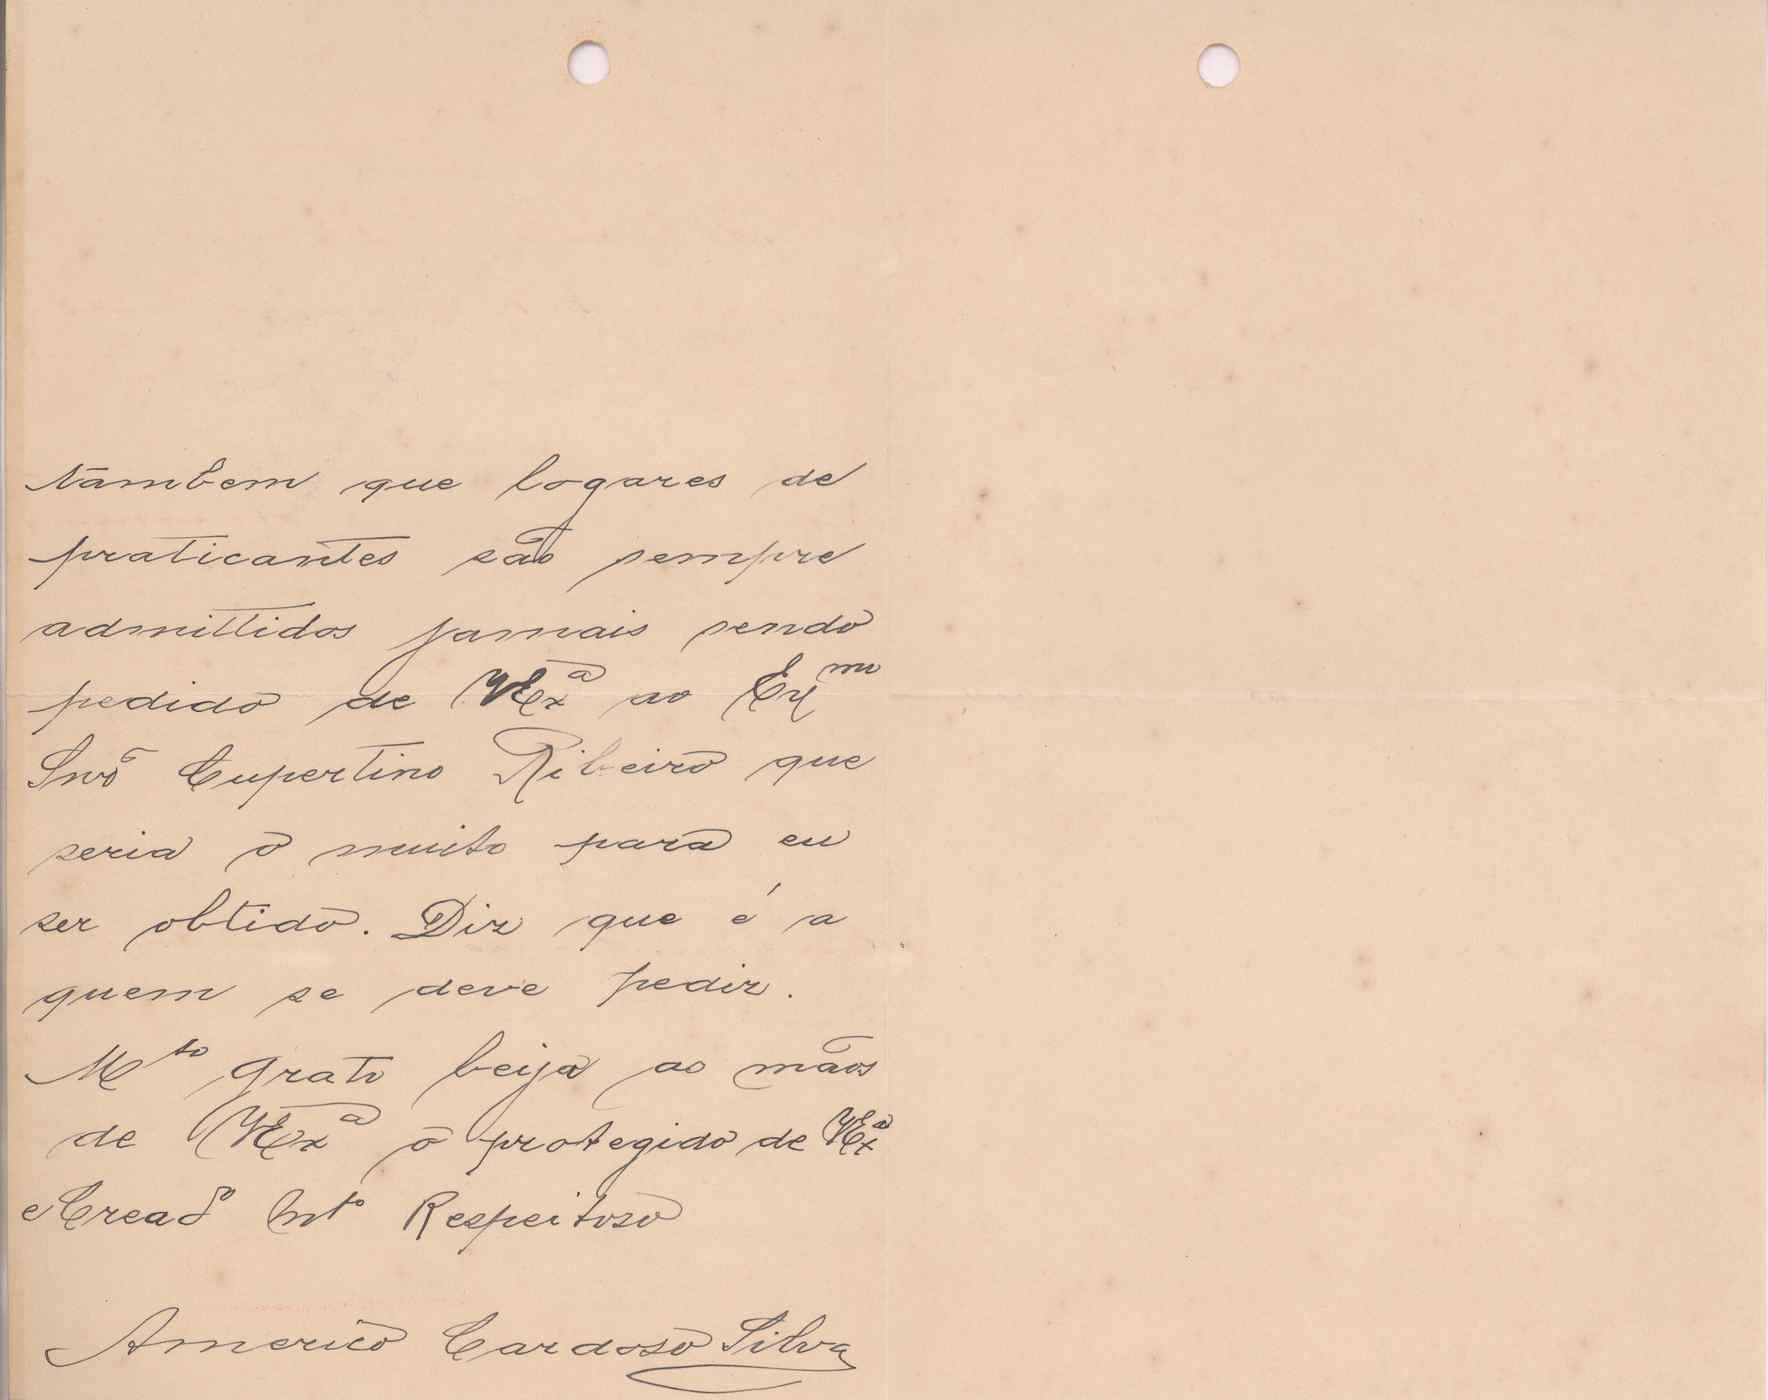 tambem que logares de
praticantes são sempre
admittidos jamais sendo
pedido de VExª ao Exmo
Snrº Cupertino Ribeiro que
seria o muito para eu
ser obtido. Diz que é a
quem se deve pedir.
Mto grato beija as mãos
de VExª o protegido de VExª
e Creadº Mtº Respeitoso
Americo Cardoso Silva